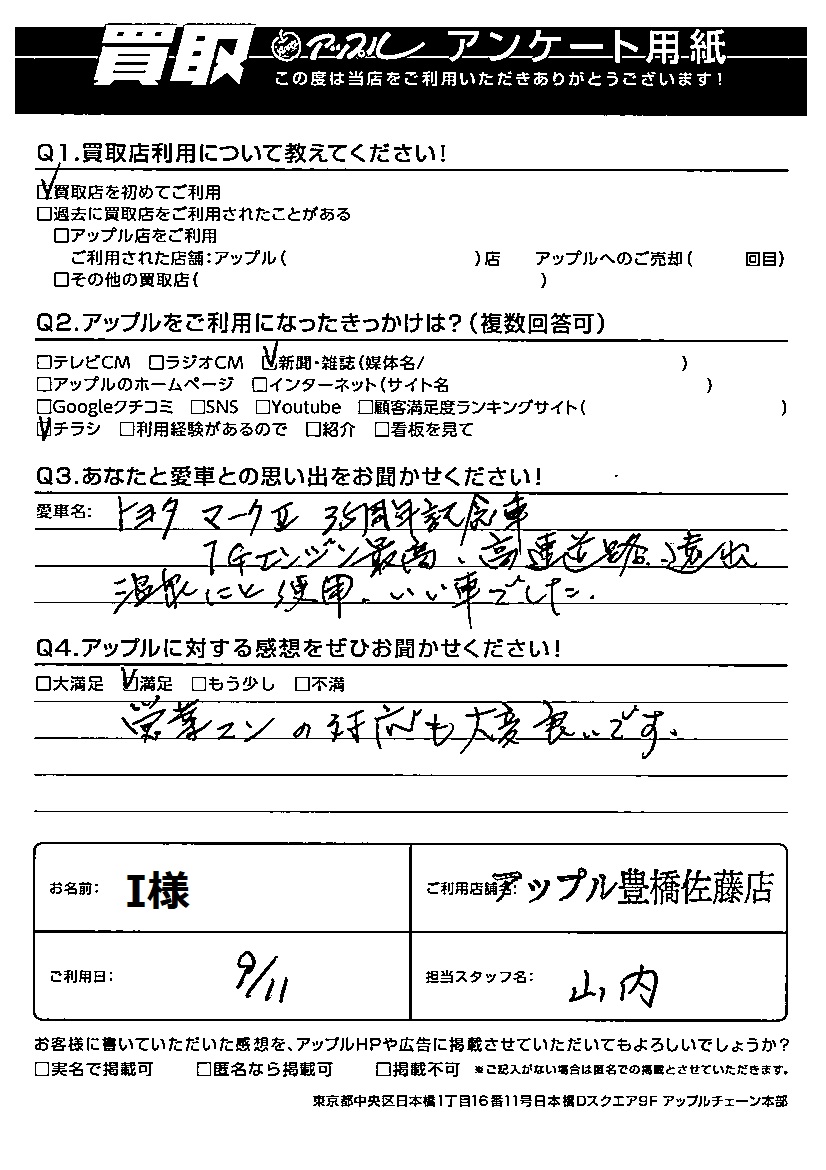 買取 アップル アンケート用紙
この度は当店をご利用いただきありがとうございます!
Q1.買取店利用について教えてください!
☑買取店を初めてご利用
□過去に買取店をご利用されたことがある
□アップル店をご利用
ご利用された店舗:アップル( )店 アップルへのご売却( 回目)
□その他の買取店( )
Q2.アップルをご利用になったきっかけは?(複数回答可)
□テレビCM □ラジオCM ☑新聞・雑誌(媒体名/ )
□アップルのホームページ □インターネット(サイト名 )
□Googleクチコミ □SNS □Youtube □顧客満足度ランキングサイト( )
☑チラシ □利用経験があるので □紹介 □看板を見て
Q3.あなたと愛車との思い出をお聞かせください!
愛車名: トヨタ マークⅡ 35周年記念車
1Gエンジン最高、高速道路、遠出
温泉にと使用、いい車でした.
Q4.アップルに対する感想をぜひお聞かせください!
□大満足 ☑満足 □もう少し □不満
営業マンの対応も大変良いです.
お名前: I様
ご利用店舗名: アップル豊橋佐藤店
ご利用日: 9/11
担当スタッフ名: 山内
お客様に書いていただいた感想を、アップルHPや広告に掲載させていただいてもよろしいでしょうか?
□実名で掲載可 □匿名なら掲載可 □掲載不可 ※ご記入がない場合は匿名での掲載とさせていただきます。
東京都中央区日本橋1丁目16番11号日本橋Dスクエア9F アップルチェーン本部